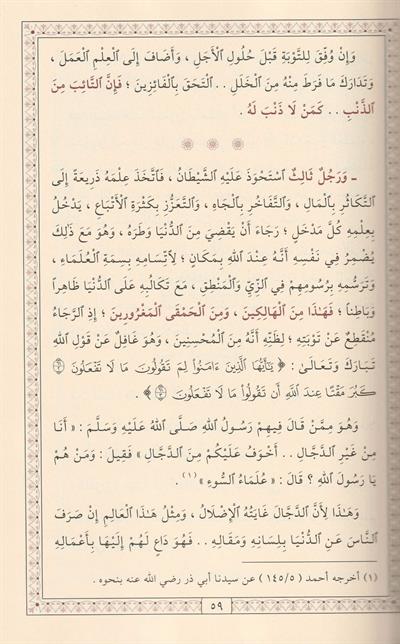 وَإِنْ وُفِّقَ لِلتَّوْبَةِ قَبْلَ حُلُولِ ٱلْأَجَلِ ، وَأَضَافَ إِلَى ٱلْعِلْمِ ٱلْعَمَلَ ،
وَتَدَارَكَ مَا فَرَطَ مِنْهُ مِنَ ٱلْخَلَلِ . . ٱلْتَحَقَ بِٱلْفَائِزِينَ ؛ فَإِنَّ ٱلتَّائِبَ مِنَ
ٱلذَّنْبِ . . كَمَنْ لَا ذَنْبَ لَهُ .
ـ وَرَجُلٌ ثَالِثٌ ٱسْتَحْوَذَ عَلَيْهِ ٱلشَّيْطَانُ ، فَٱتَّخَذَ عِلْمَهُ ذَرِيعَةً إِلَى
ٱلتَّكَاثُرِ بِٱلْمَالِ ، وَٱلتَّفَاخُرِ بِٱلْجَاهِ ، وَٱلتَّعَزُّزِ بِكَثْرَةِ ٱلْأَتْبَاعِ ، يَدْخُلُ
بِعِلْمِهِ كُلَّ مَدْخَلٍ ؛ رَجَاءَ أَنْ يَقْضِيَ مِنَ ٱلدُّنْيَا وَطَرَهُ ، وَهُوَ مَعَ ذَلِكَ
يُضْمِرُ فِي نَفْسِهِ أَنَّهُ عِنْدَ ٱللهِ بِمَكَانٍ ؛ لِاتِّسَامِهِ بِسِمَةِ ٱلْعُلَمَاءِ ،
وَتَرَسُّمِهِ بِرُسُومِهِمْ فِي ٱلزِّيِّ وَٱلْمَنْطِقِ ، مَعَ تَكَالُبِهِ عَلَى ٱلدُّنْيَا ظَاهِراً
وَبَاطِناً ؛ فَهَـٰذَا مِنَ ٱلْهَالِكِينَ ، وَمِنَ ٱلْحَمْقَى ٱلْمَغْرُورِينَ ؛ إِذِ ٱلرَّجَاءُ
مُنْقَطِعٌ عَنْ تَوْبَتِهِ ؛ لِظَنِّهِ أَنَّهُ مِنَ ٱلْمُحْسِنِينَ ، وَهُوَ غَافِلٌ عَنْ قَوْلِ ٱللهِ
تَبَارَكَ وَتَعَالَىٰ : ﴿ يَـٰٓأَيُّهَا ٱلَّذِينَ ءَامَنُوا۟ لِمَ تَقُولُونَ مَا لَا تَفْعَلُونَ ۝٢
كَبُرَ مَقْتًا عِندَ ٱللَّهِ أَن تَقُولُوا۟ مَا لَا تَفْعَلُونَ ۝٣ ﴾ .
وَهُوَ مِمَّنْ قَالَ فِيهِمْ رَسُولُ ٱللهِ صَلَّى ٱللهُ عَلَيْهِ وَسَلَّمَ : « أَنَا
مِنْ غَيْرِ ٱلدَّجَّالِ . . أَخْوَفُ عَلَيْكُمْ مِنَ ٱلدَّجَّالِ » فَقِيلَ : وَمَنْ هُمْ
يَا رَسُولَ ٱللهِ ؟ قَالَ : « عُلَمَاءُ ٱلسُّوءِ » (١) .
وَهَـٰذَا لِأَنَّ ٱلدَّجَّالَ غَايَتُهُ ٱلْإِضْلَالُ ، وَمِثْلُ هَـٰذَا ٱلْعَالِمِ إِنْ صَرَفَ
ٱلنَّاسَ عَنِ ٱلدُّنْيَا بِلِسَانِهِ وَمَقَالِهِ . . فَهُوَ دَاعٍ لَهُمْ إِلَيْهَا بِأَعْمَالِهِ
(١) أخرجه أحمد ( ١٤٥/٥ ) عن سيدنا أبي ذر رضي الله عنه بنحوه .
٥٩